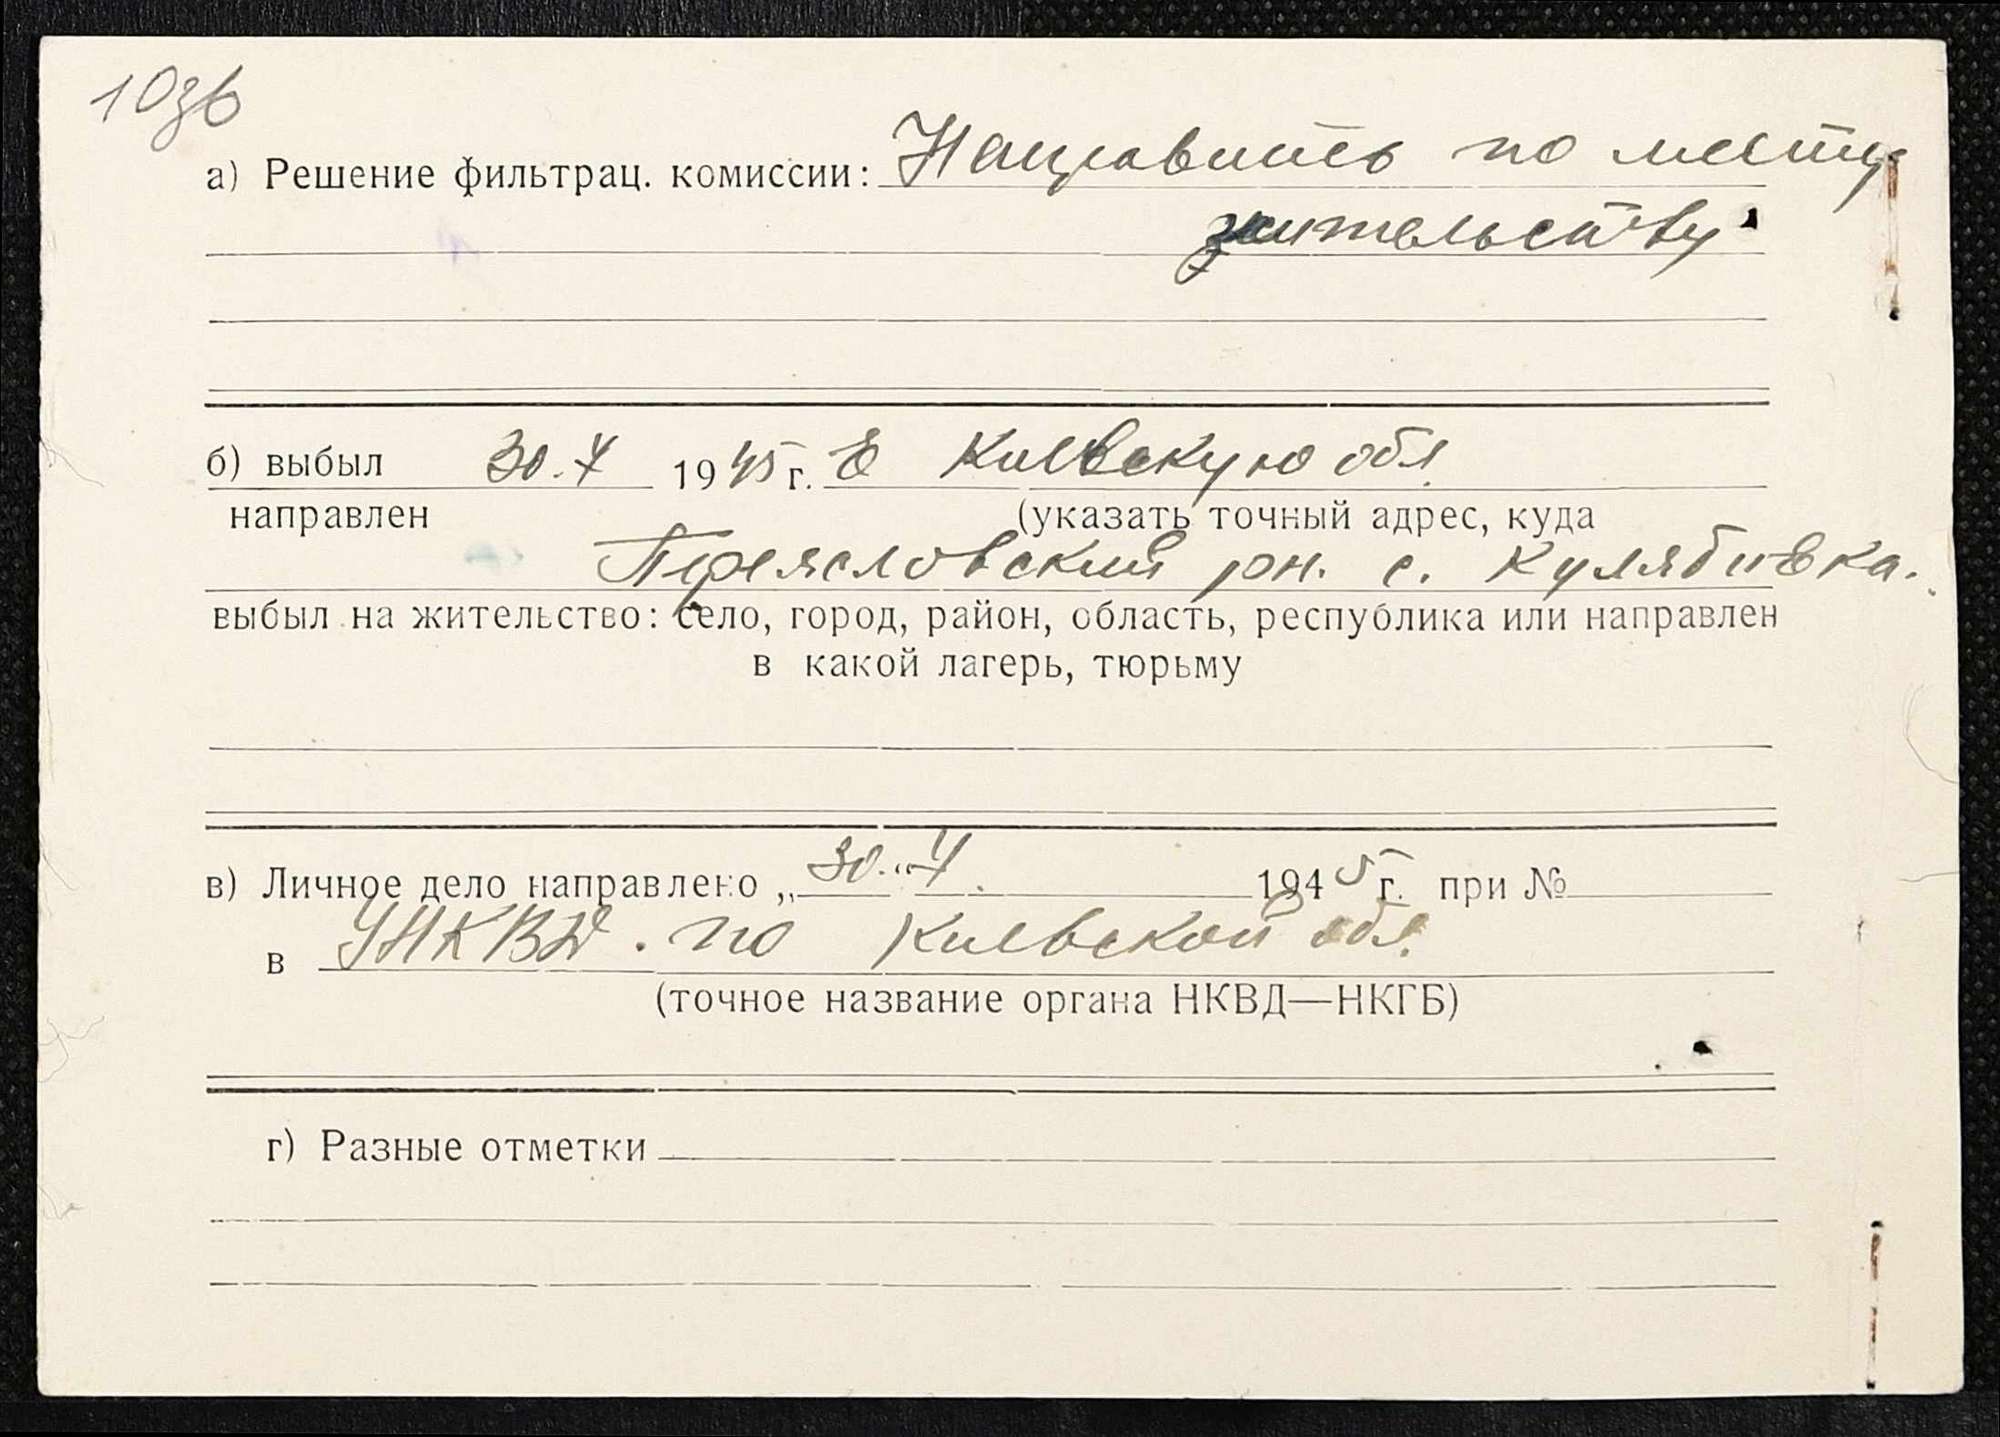 103б
а) Решение фильтрац. комиссии: Направить по месту
жительству
б) выбыл 30.V 1945 г. В Киевскую обл.
направлен (указать точный адрес, куда
Переясловский рн. с. Кулябивка.
выбыл на жительство: село, город, район, область, республика или направлен
в какой лагерь, тюрьму
в) Личное дело направлено „30.“ V. 1945 г. при №
в УНКВД. по Киевской обл.
(точное название органа НКВД—НКГБ)
г) Разные отметки